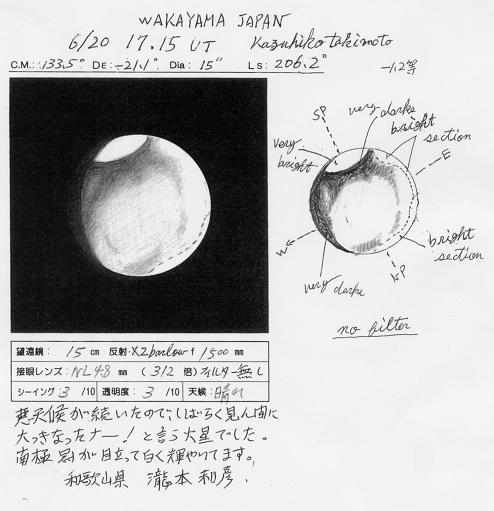 WAKAYAMA JAPAN
6/20 17.15 UT Kazuhiko takimoto
C.M.: 133.5° DE: -21.1° Dia: 15" Ls: 206.2°
-1.2等
SP
very darke
bright section
very bright
E
W
very darke
NP
bright section
no filter
望遠鏡: 15 cm 反射・×2 barlow f 1500 mm
接眼レンズ: NL4.8 mm ( 312 倍) フィルター無し
シーイング: 3 /10 透明度: 3 /10 天候: 晴れ
悪天候が続いたので、しばらく見ん間に
大っきなったナー! と言う火星でした。
南極冠が目立って白く輝やいてます。
和歌山県 瀧本 和彦.